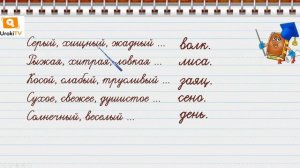 UrokiTV
Серый, хищный, жадный ... волк.
Рыжая, хитрая, ловкая ... лиса.
Косой, слабый, трусливый ... заяц.
Сухое, свежее, душистое ... сено.
Солнечный, веселый ... день.